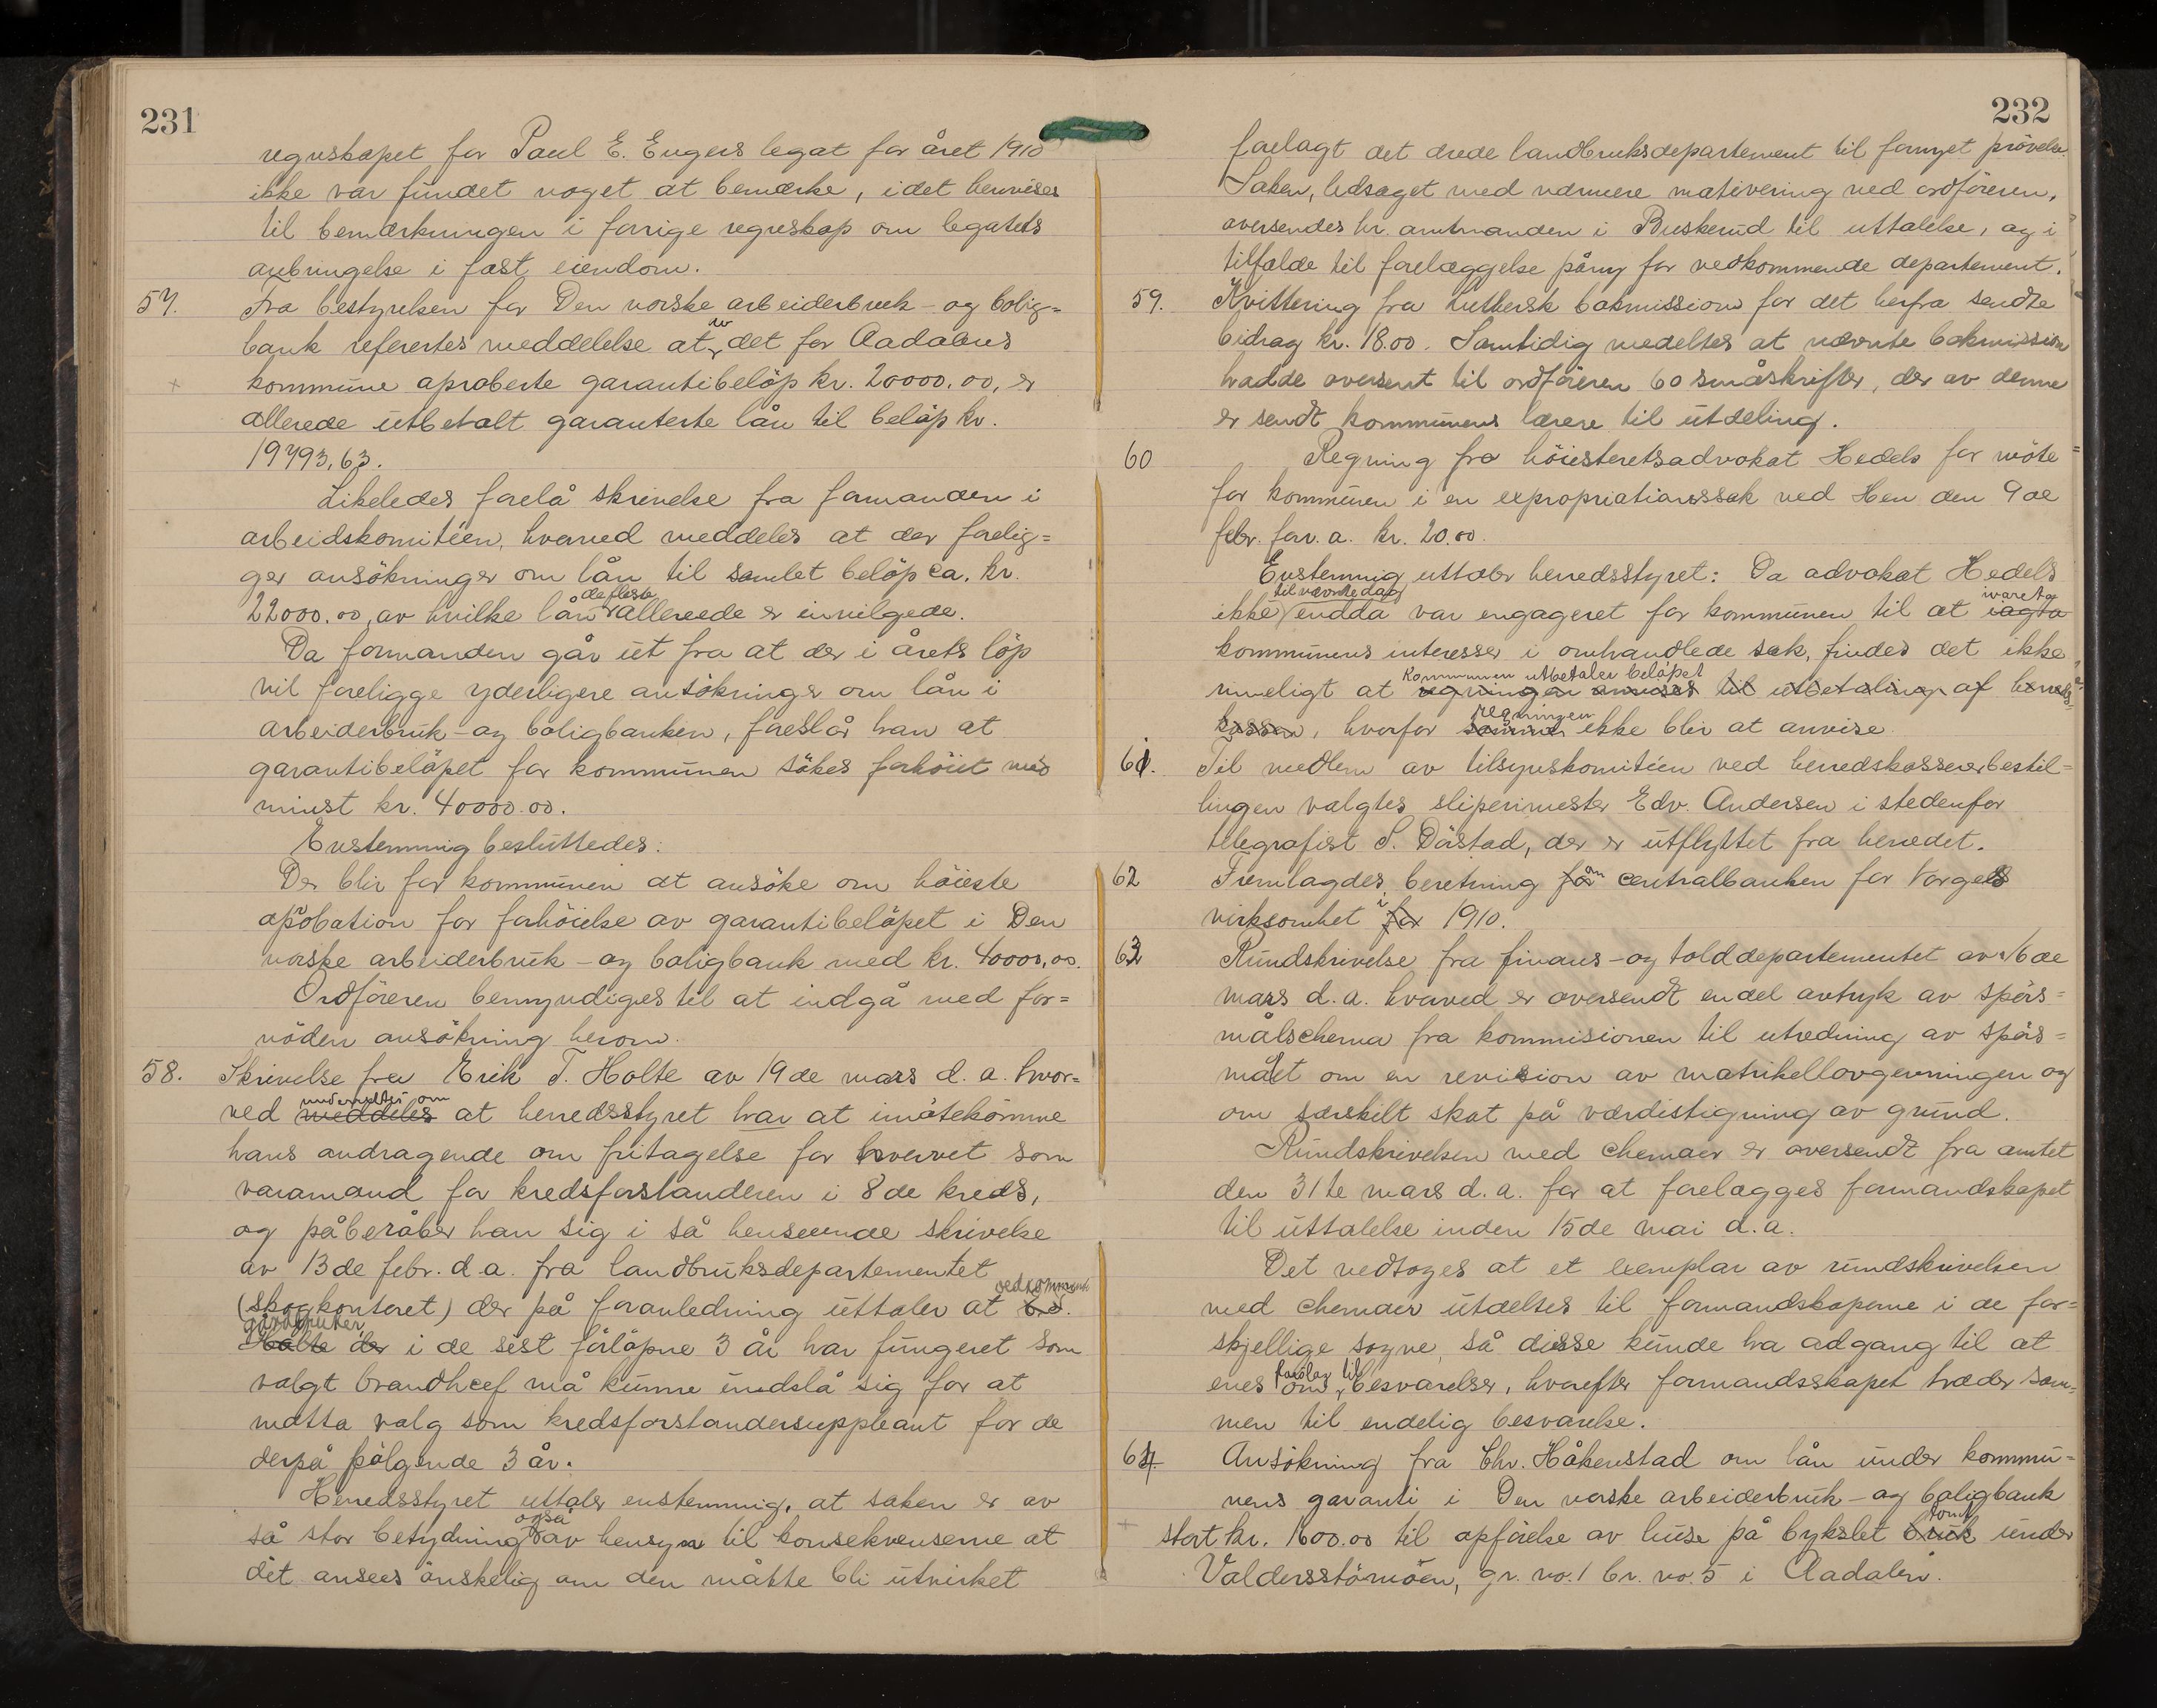 231
regnskapet for Paul E. Engers legat for året 1910
ikke var fundet noget at bemærke, idet henvises
til bemærkningen i forrige regnskap om legatets
anbringelse i fast eiendom.
57. Fra bestyrelsen for Den norske arbeiderbruk- og bolig=
bank referertes meddelelse at av det for Aadalens
kommune aproberte garantibeløp kr. 20000.00, er
allerede utbetalt garanterte lån til beløp kr.
19793,63.
Likeledes forelå skrivelse fra formanden i
arbeidskomitéen, hvorved meddeles at der forelig=
ger ansökninger om lån til samlet beløp ca. kr.
22000.00, av hvilke lån de fleste allereede er invilgede.
Da formanden går ut fra at der i årets löp
vil foreligge yderligere ansökninger om lån i
arbeiderbruk- og boligbanken, foreslår han at
garantibelöpet for kommunen sökes forhöiet med
minst kr. 40000.00.
Enstemmig besluttedes:
Der blir for kommunen at ansöke om höieste
aprobation for forhöielse av garantibelöpet i Den
norske arbeiderbruk- og boligbank med kr. 40000,00.
Ordföreren bemyndiges til at indgå med for=
nöden ansökning herom.
58. Skrivelse fra Erik T. Holte av 19de mars d.a. hvor=
ved meddeles underrettes om at herredsstyret har at imötekomme
hans andragende om fritagelse for hvervet som
varamand for kredsforstanderen i 8de kreds,
og påberåber han sig i så henseende skrivelse
av 13de febr. d.a. fra landbruksdepartementet
(skogkontoret) der på foranledning uttaler at vedkommende
gårdbruker Holte der i de sist forløpne 3 år har fungeret som
valgt brandchef må kunne undslå sig for at
motta valg som kredsforstandersuppleant for de
derpå fölgende 3 år.
Herredsstyret uttaler enstemmig, at saken er av
så stor betydning også av hensyn til konsekvenserne at
det ansees önskelig om den måtte bli utvirket
232
forelagt det ærede landbruksdepartement til fornyet prövelse.
Saken, ledsaget med nærmere motivering ved ordföreren,
oversendes hr. amtmanden i Buskerud til uttalelse, og i
tilfælde til forelæggelse påny for vedkommende departement.
59. Kvittering fra luthersk bokmission for det herfra sendte
bidrag kr. 18.00. Samtidig meddeltes at nævnte bokmission
hadde oversent til ordföreren 60 småskrifter, der av denne
er sendt kommunens lærere til utdeling.
60 Regning fra höiesteretsadvokat Hedels for möte
for kommunen i en expropriationssak ved Hen den 9de
febr. forr. a. kr. 20.00.
Enstemmig uttaler herredsstyret: Da advokat Hedels
ikke til nævnte dag endda var engageret for kommunen til at iagta ivareta
kommunens interesser i omhandlede sak, findes det ikke
rimeligt at regningen anvises til utbetaling af herreds= kommunen utbetaler belöpet
kassen, hvorfor samme regningen ikke blir at anvise.
61. Til medlem av tilsynskomitéen ved herredskassererbestil=
lingen valgtes slipermester Edv. Andersen i stedenfor
telegrafist S. Dåstad, der er utflyttet fra herredet.
62 Fremlagdes beretning for om centralbanken for Norges
virksomhet for i 1910.
63 Rundskrivelse fra finans- og tolddepartementet av 16de
mars d.a. hvorved er oversendt endel avtryk av spörs=
målschema fra kommisionen til utredning av spörs=
målet om en revision av matrikellovgivningen og
om særskilt skat på værdistigning av grund.
Rundskrivelsen med chemaer er oversendt fra amtet
den 31te mars d.a. for at forelægges formandskapet
til uttalelse inden 15de mai d.a.
Det vedtoges at et exemplar av rundskrivelsen
med chemaer utdeltes til formandskaperne i de for=
skjellige sogne, så disse kunde ha adgang til at
enes om forslag til besvarelser, hvorefter formandsskapet træder sam=
men til endelig besvarelse.
64. Ansökning fra Chr. Håkenstad om lån under kommu=
nens garanti i Den norske arbeiderbruk- og boligbank
stort kr. 1600.00 til opförelse av huse på bykslet bruk tomt under
Valdersstömöen, gr. no. 1 br. no. 5 i Aadalen.